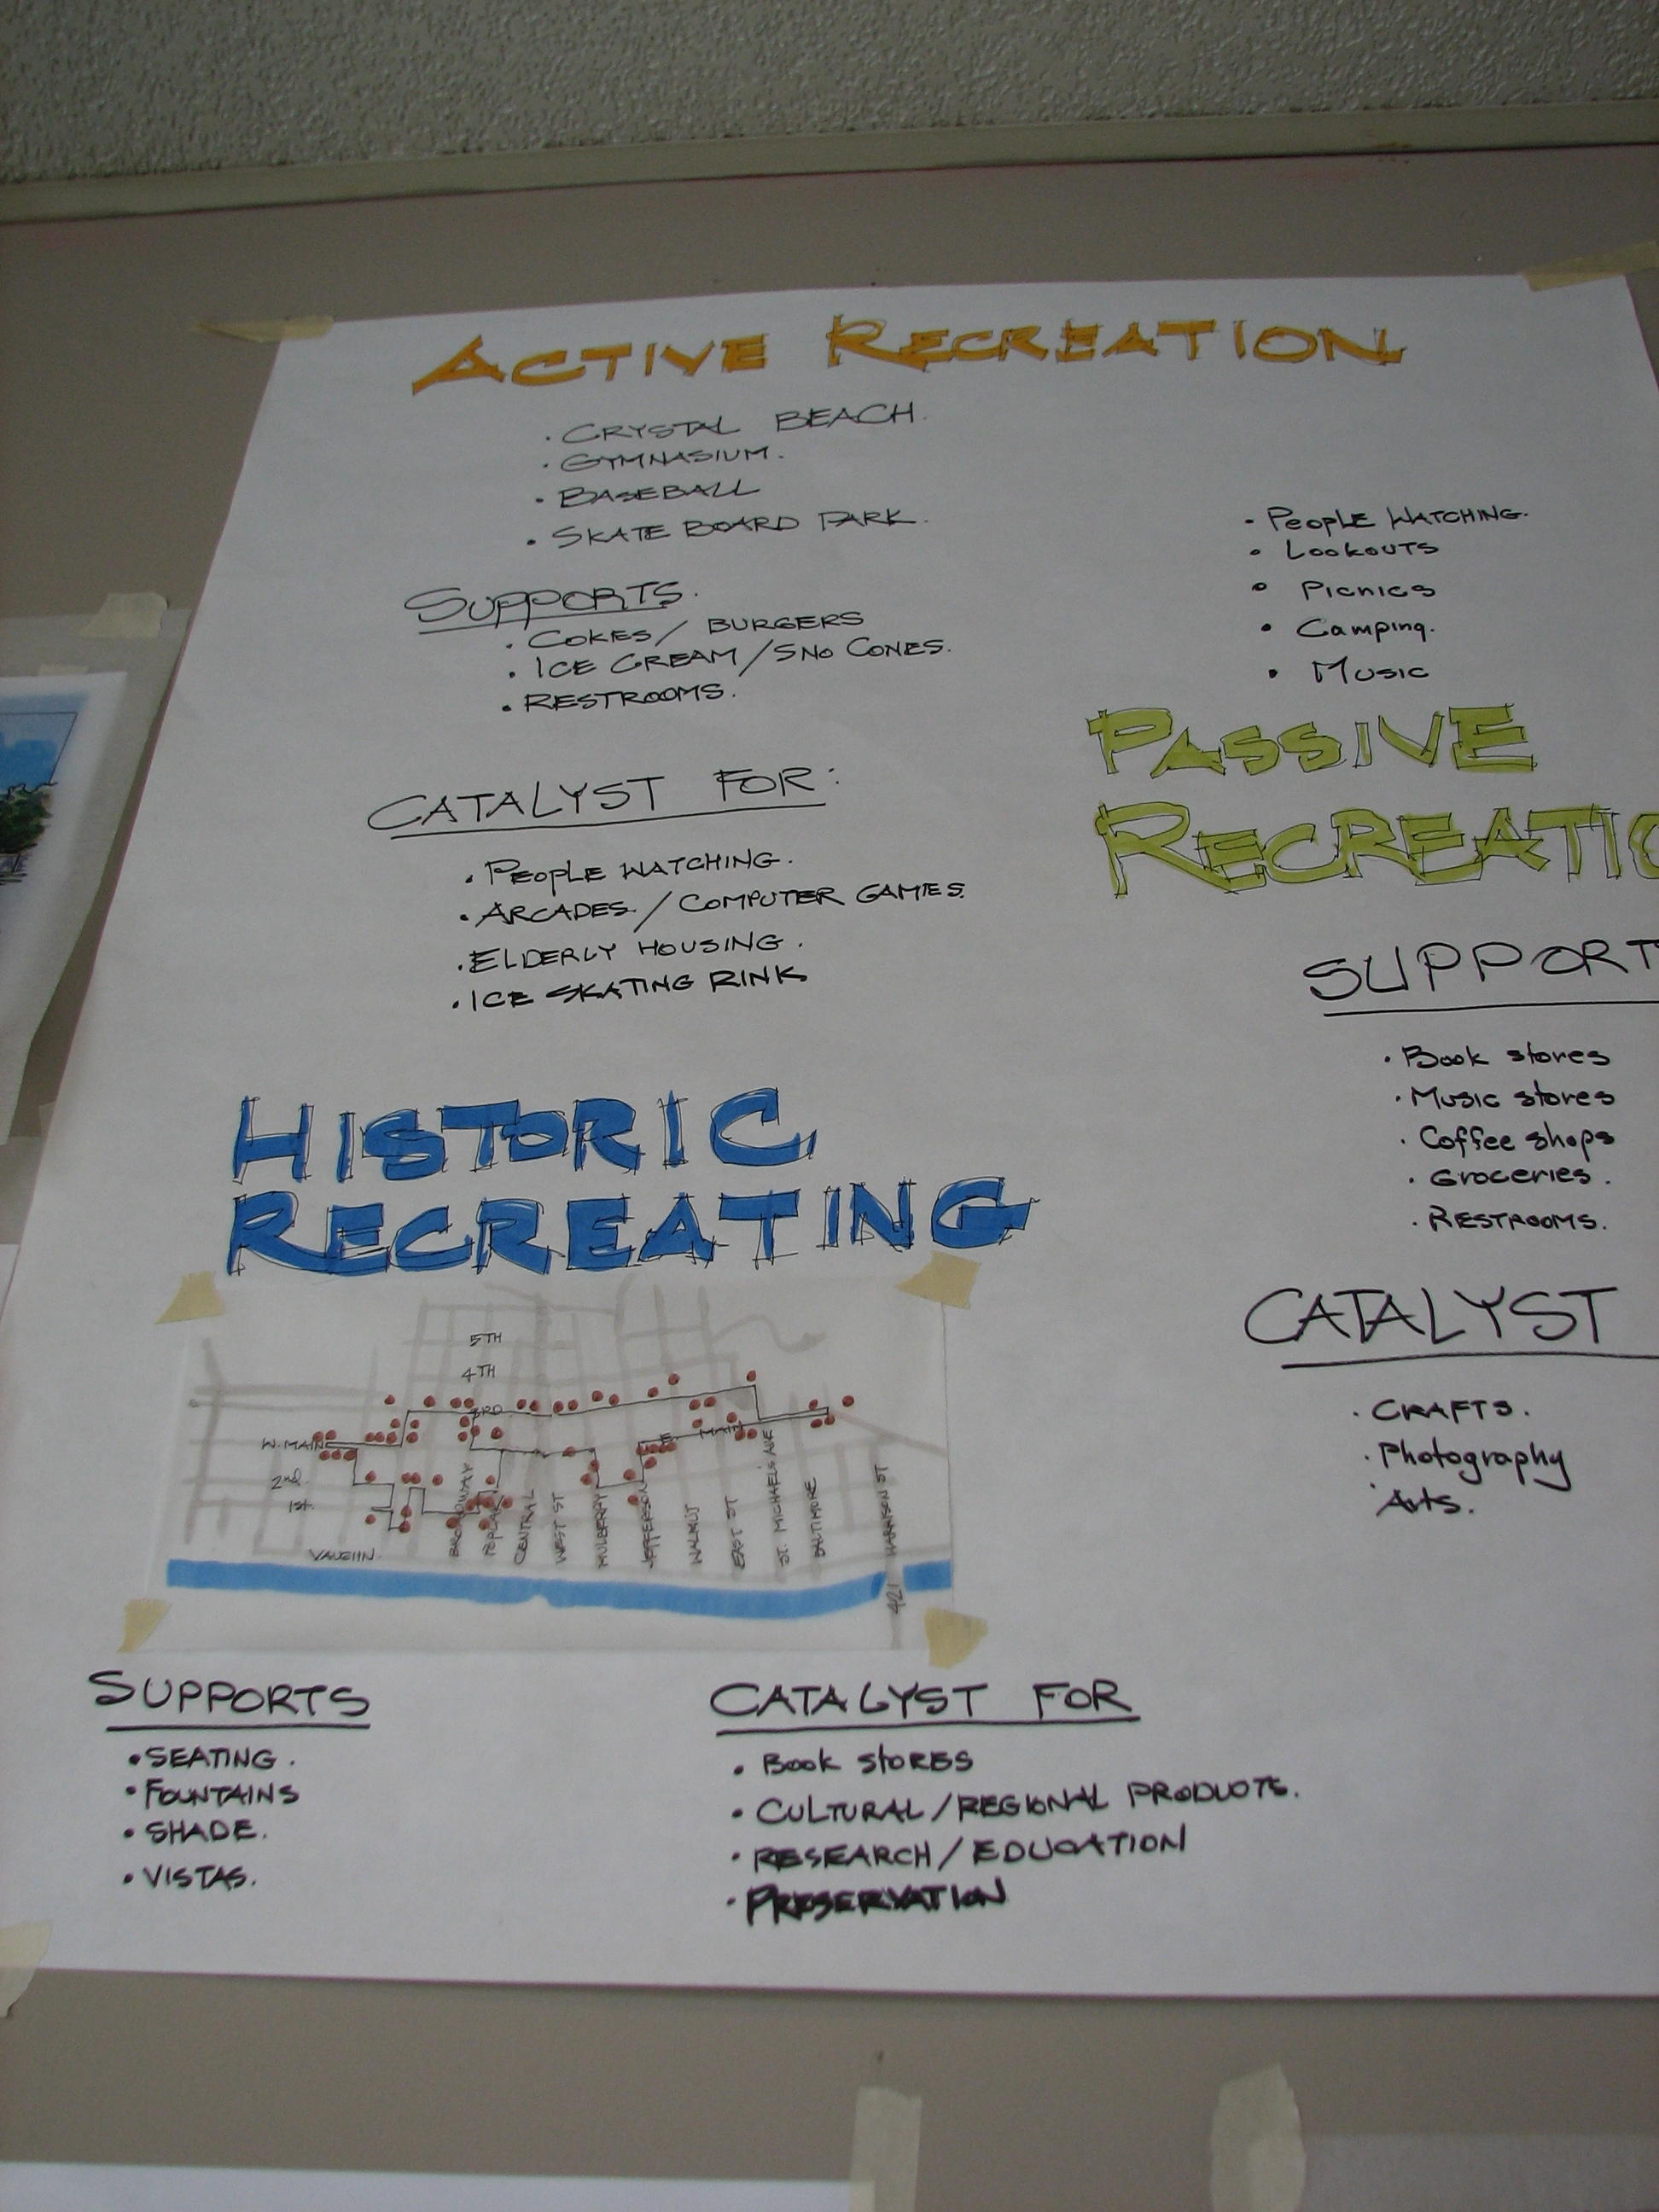 ACTIVE RECREATION
• CRYSTAL BEACH.
• GYMNASIUM.
• BASEBALL
• SKATE BOARD PARK.
SUPPORTS.
• COKES/ BURGERS
• ICE CREAM/SNO CONES.
• RESTROOMS.
CATALYST FOR:
• PEOPLE WATCHING.
• ARCADES/COMPUTER GAMES.
• ELDERLY HOUSING.
• ICE SKATING RINK
• PEOPLE WATCHING.
• LOOKOUTS
• PICNICS
• Camping.
• MUSIC
PASSIVE
RECREATIO
SUPPORT
• Book stores
• Music stores
• Coffee shops
• Groceries.
• RESTROOMS.
CATALYST
• CRAFTS.
• Photography
• Arts.
HISTORIC
RECREATING
5TH
4TH
3RD
W. MAIN
E. MAIN
2nd
1st.
VAUGHN.
BROADWAY
POPLAR
CENTRAL
WEST ST
MULBERRY
JEFFERSON
WALNUT
EAST ST
ST. MICHAELS AVE
BALTIMORE
HARRISON ST
421
SUPPORTS
• SEATING.
• FOUNTAINS
• SHADE.
• VISTAS.
CATALYST FOR
• Book STORES
• CULTURAL/REGIONAL PRODUCTS.
• RESEARCH/EDUCATION
• PRESERVATION